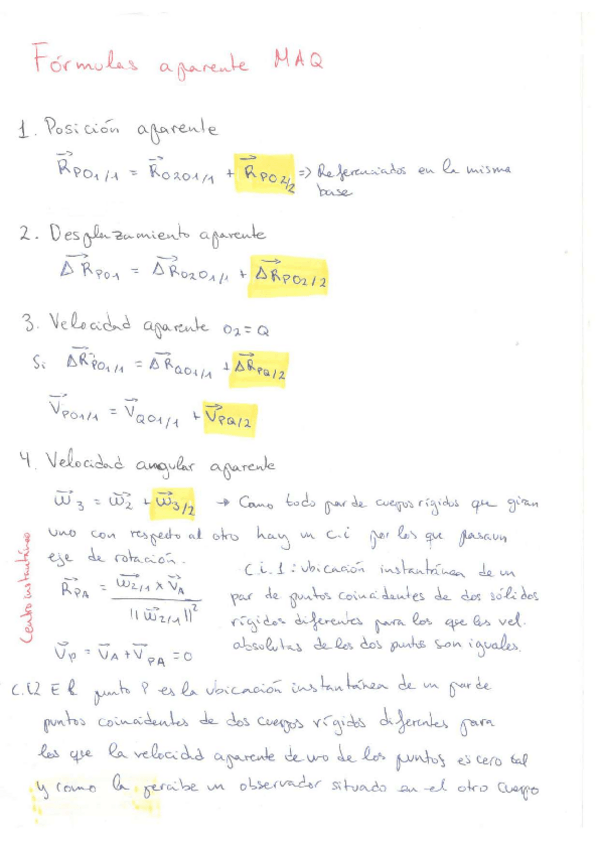 Fórmulas aparente MAQ
1. Posición aparente
R⃗PO1/1 = R⃗O2O1/1 + R⃗PO2/2 => Referenciados en la misma
base
2. Desplazamiento aparente
ΔR⃗PO1 = ΔR⃗O2O1/1 + ΔR⃗PO2/2
3. Velocidad aparente O2=Q
Si ΔR⃗PO1/1 = ΔR⃗QO1/1 + ΔR⃗PQ/2
V⃗PO1/1 = V⃗QO1/1 + V⃗PQ/2
4. Velocidad angular aparente
ω⃗3 = ω⃗2 + ω⃗3/2 → Como todo par de cuerpos rígidos que giran
uno con respecto al otro hay un c.i por los que pasa un
eje de rotación.
Centro instantáneo
R⃗PA = ω⃗2/1 × V⃗A / ||ω⃗2/1||²
V⃗P = V⃗A + V⃗PA = 0
C.i.1: ubicación instantánea de un
par de puntos coincidentes de dos sólidos
rígidos diferentes para los que las vel.
absolutas de los dos puntos son iguales.
C.I2 El punto P es la ubicación instantánea de un par de
puntos coincidentes de dos cuerpos rígidos diferentes para
los que la velocidad aparente de uno de los puntos es cero tal
y como la percibe un observador situado en el otro cuerpo